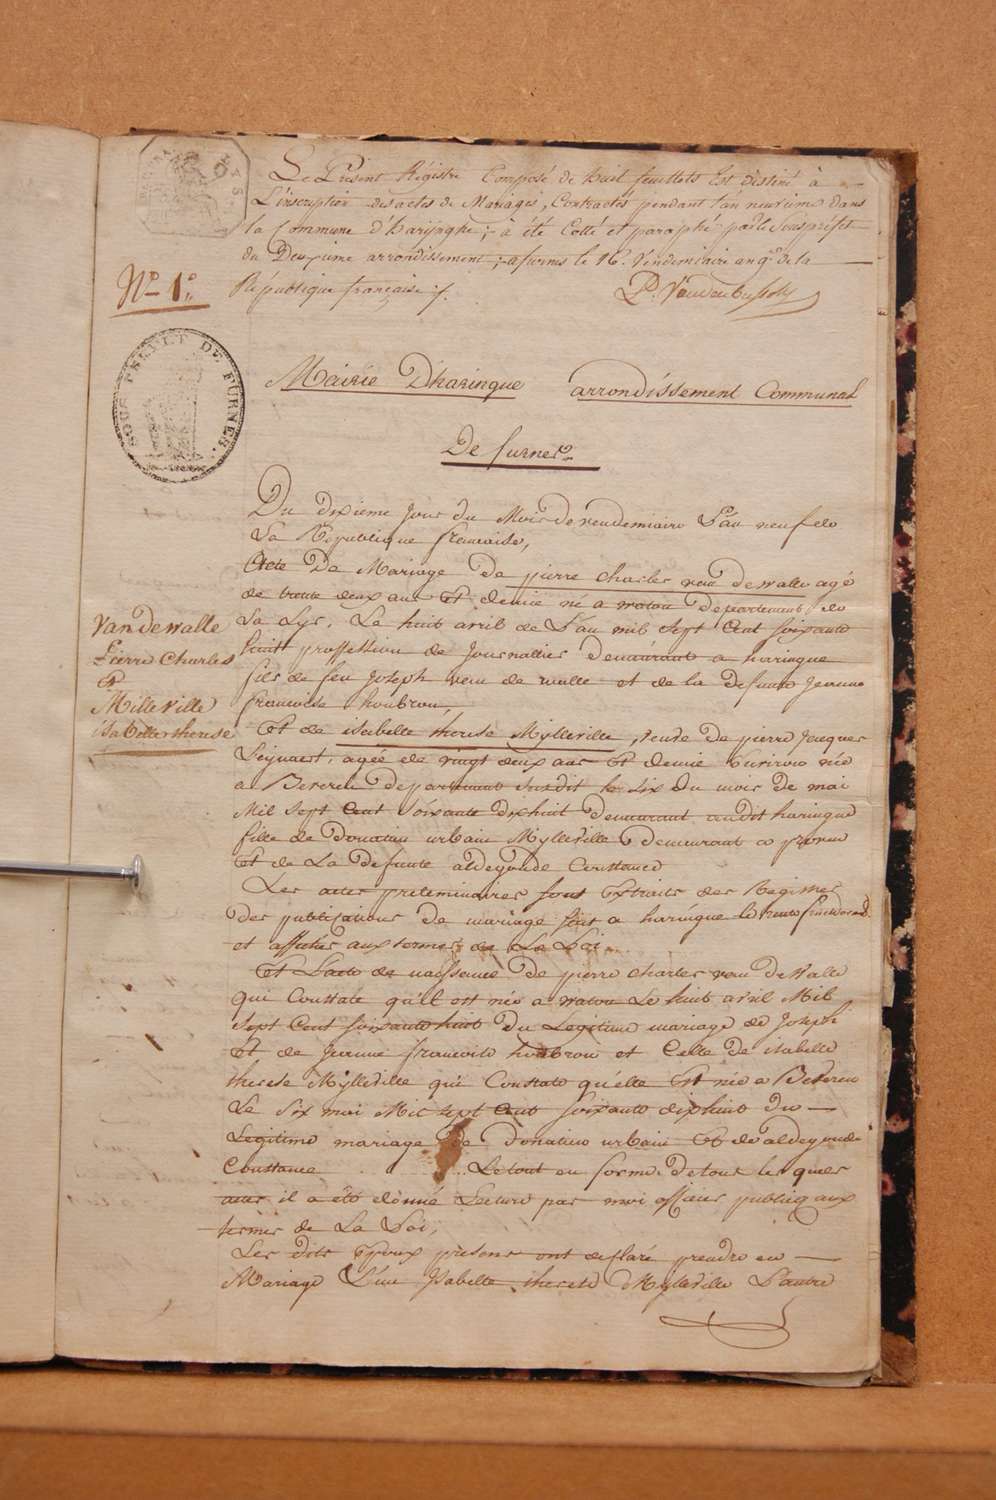 Le Présent Régistre Composé de huit feuillets Est destiné à
L'inscription des actes de Mariages, Contractés pendant l'an neuvieme dans
la Commune d'harijnghe; à été Cotté et paraphé par le Sousprefet
du Deuxieme arrondissement; a furnes le 16. Vendemiaire an 9e de la
République française /.
P. Vandenbussche
No 1o
SOUS PREFET DE FURNES.
Mairie D'haringue arrondissement Communal
De furnes
Du dixieme Jour du Mois de vendemiaire L'an neuf de
La Republique francaise,
Acte De Mariage De pierre charles van de walle agé
de trente deux ans Et demie né a watou departement de
La Lys, Le huit avril de L'an mil sept Cent soixante
huitt proffession de Journallier Demeurant a haringue
fils de feu Joseph van de walle et de la defunte Jeanne
francoise houbron,
Et de isabelle therese Mylleville, veuve de pierre Jacques
Leijnaert, agée de vingt deux ans Et demie Environ née
a Beveren departement susdit le six du mois de mai
Mil sept Cent soixante dixhuit demeurant audit haringue
fille de Donatien urbain Mylleville demeurant a proven
Et de La defunte aldegonde Constance
Vandewalle
Pierre Charles
Et
Milleville
isabelle therese
Les actes preleminaires sont Extraits des Registres
des publications de mariage fait a haringue le trente fructidor
et affichés aux termes de La Loi
Et L'acte de naissance De pierre charles van de Walle
qui Constate qu'il est née a watou Le huit avril Mil
sept Cent soixante huit Du Legitime mariage de Joseph
Et de Jeanne francoise houbron et Celle de isabelle
therese Mylleville qui Constate qu'elle Est née a Beveren
Le six mai Mil sept Cent soixante dixhuit du
Legitime mariage de Donatien urbain Et de aldegonde
Constance Le tout en forme. De tous les quels
actes il a été donné Lecture par moi officier publicq aux
termes de La Loi;
Les dits Epoux présens ont declaré prendre en
Mariage L'une Isabelle therese Mylleville L'autre